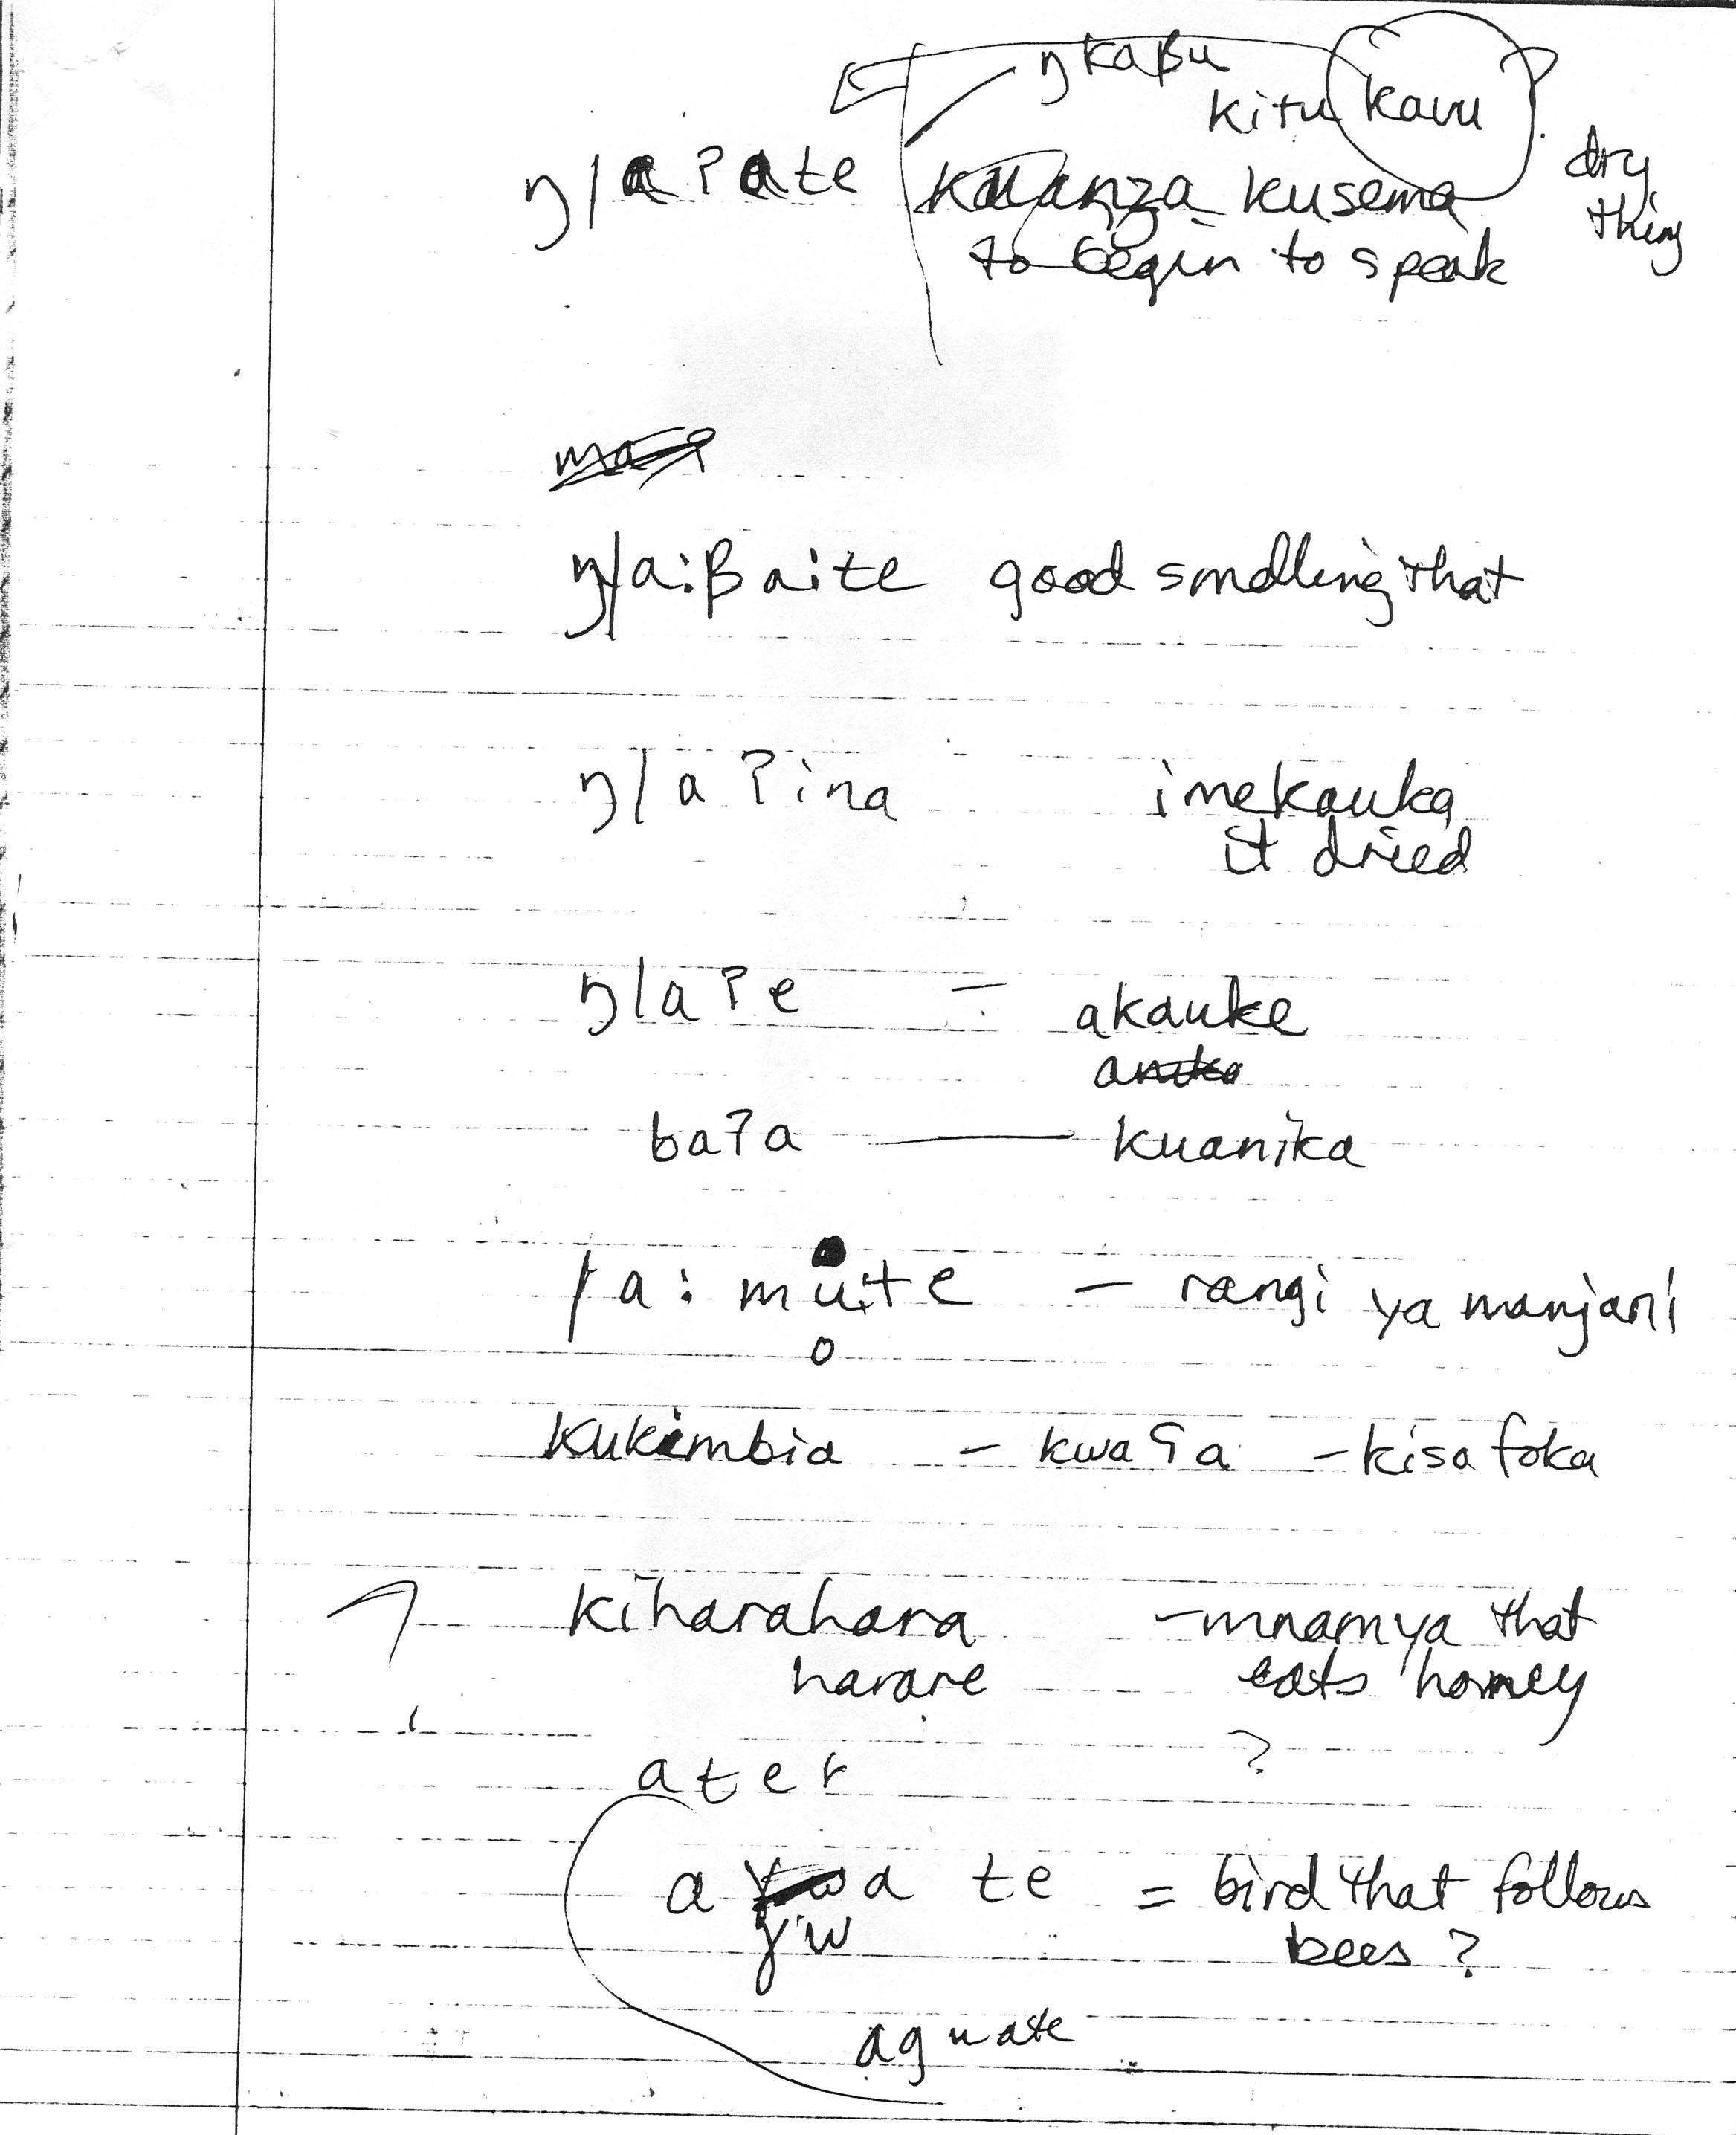 ŋkaβu
kitu kavu
dry
thing
ŋ|aʔate kuanza kusema
to begin to speak
ŋ|a:βaite good smelling that
ŋ|aʔina imekauka
it dried
ŋ|aʔe = akauke
baʔa — kuanika
|a: mu:te – rangi ya manjani
o
kukimbia – kwaʕa – kisafoka
kiharahara – mnamya that
harare eats honey
?
ater
a a te = bird that follows
ɣw bees?
aguate